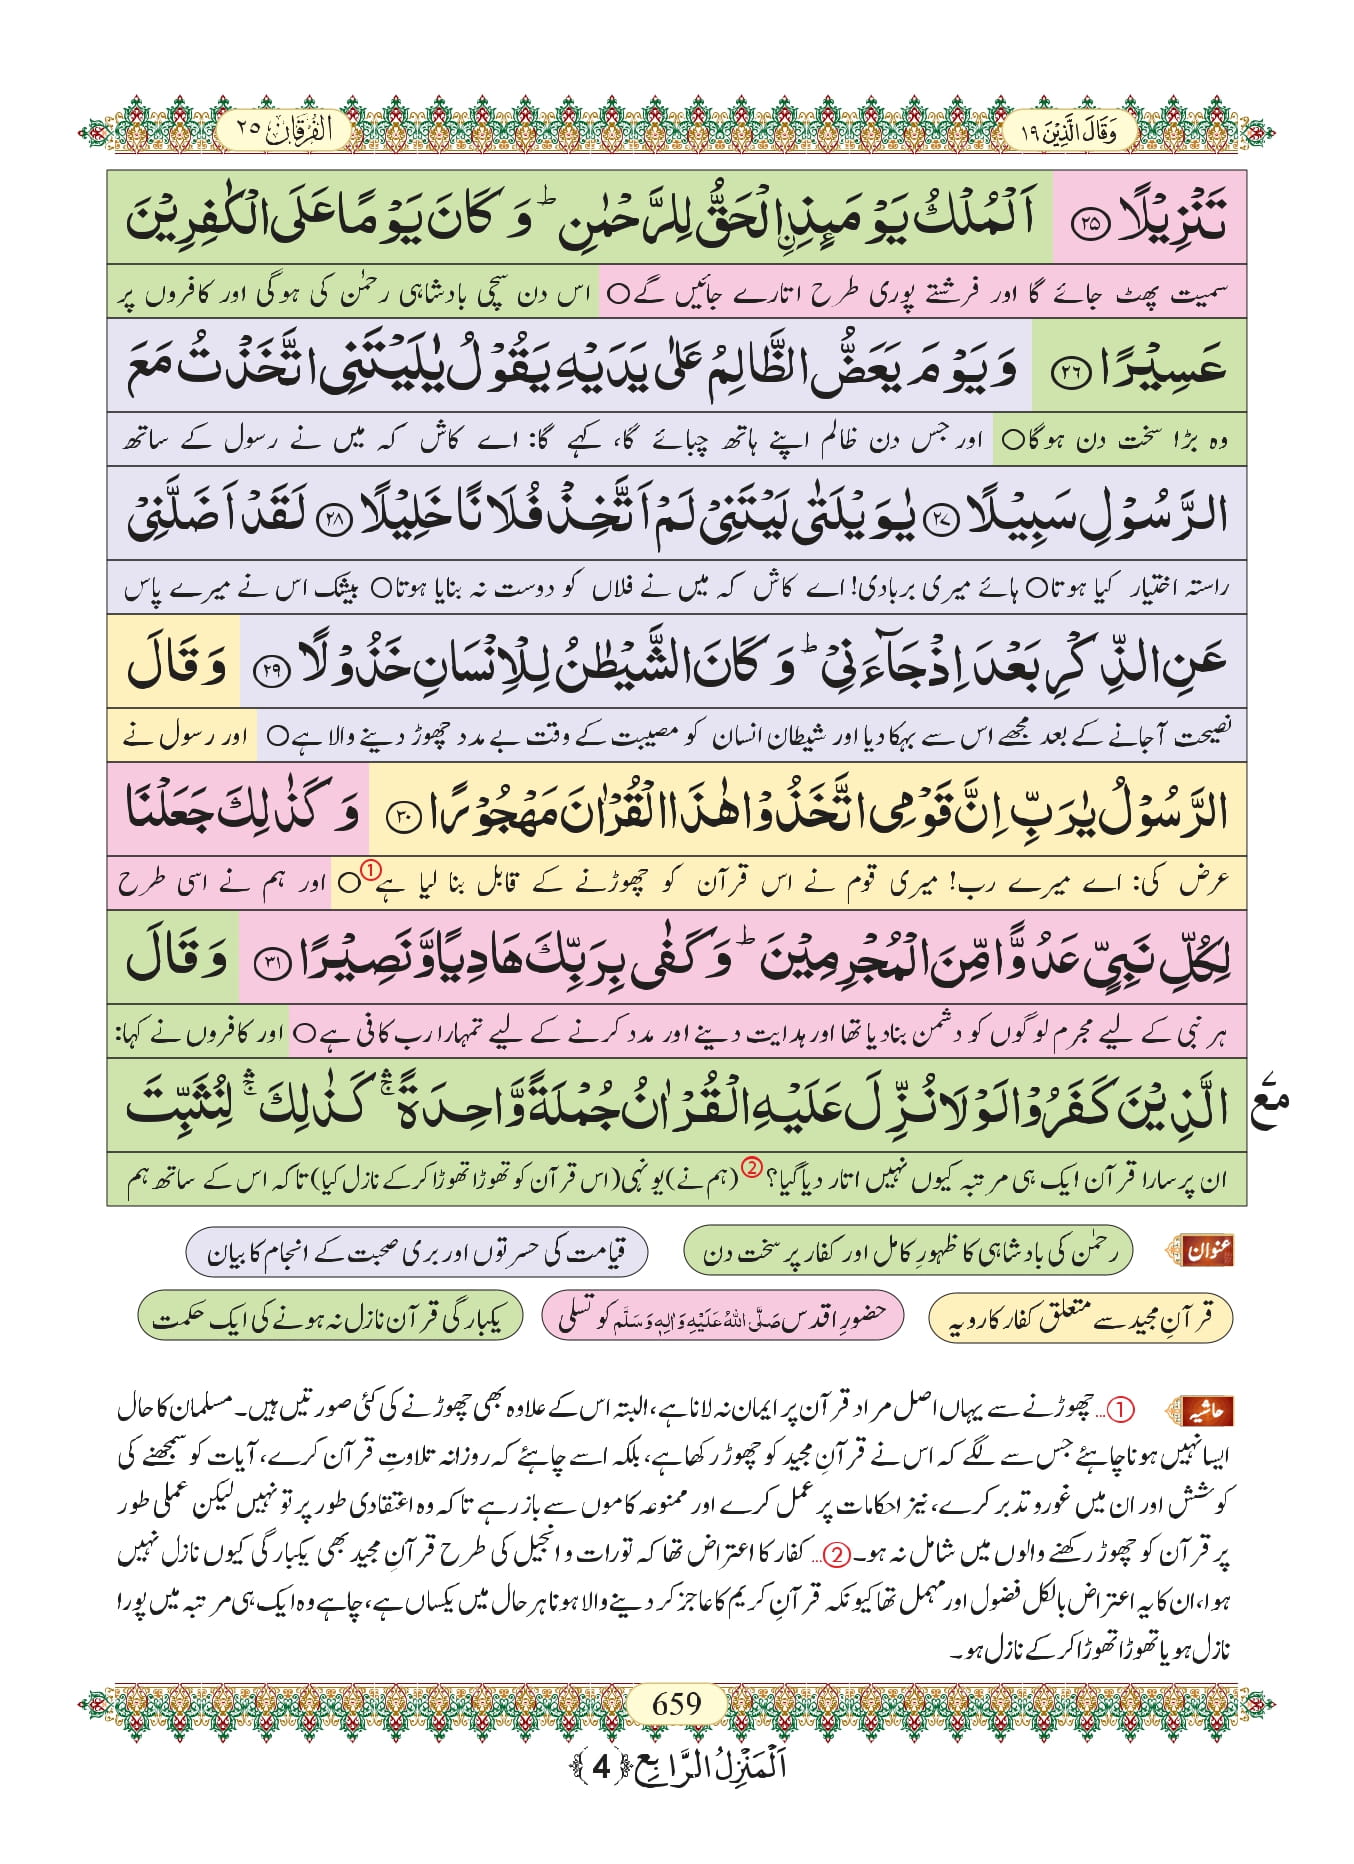 وَقَالَ الَّذِیْنَ ۱۹
الْفُرْقَان ۲۵
تَنْزِیْلًا ﴿۲۵﴾ اَلْمُلْكُ یَوْمَىٕذِ ﹰالْحَقُّ لِلرَّحْمٰنِؕ وَ كَانَ یَوْمًا عَلَى الْكٰفِرِیْنَ
سمیت پھٹ جائے گا اور فرشتے پوری طرح اتارے جائیں گے○ اس دن سچی بادشاہی رحمٰن کی ہوگی اور کافروں پر
عَسِیْرًا ﴿۲۶﴾ وَ یَوْمَ یَعَضُّ الظَّالِمُ عَلٰى یَدَیْهِ یَقُوْلُ یٰلَیْتَنِی اتَّخَذْتُ مَعَ
وہ بڑا سخت دن ہوگا○ اور جس دن ظالم اپنے ہاتھ چبائے گا، کہے گا: اے کاش کہ میں نے رسول کے ساتھ
الرَّسُوْلِ سَبِیْلًا ﴿۲۷﴾ یٰوَیْلَتٰى لَیْتَنِیْ لَمْ اَتَّخِذْ فُلَانًا خَلِیْلًا ﴿۲۸﴾ لَقَدْ اَضَلَّنِیْ
راستہ اختیار کیا ہوتا○ ہائے میری بربادی! اے کاش کہ میں نے فلاں کو دوست نہ بنایا ہوتا○ بیشک اس نے میرے پاس
عَنِ الذِّكْرِ بَعْدَ اِذْ جَآءَنِیْؕ وَ كَانَ الشَّیْطٰنُ لِلْاِنْسَانِ خَذُوْلًا ﴿۲۹﴾ وَ قَالَ
نصیحت آجانے کے بعد مجھے اس سے بہکا دیا اور شیطان انسان کو مصیبت کے وقت بے مدد چھوڑ دینے والا ہے○ اور رسول نے
الرَّسُوْلُ یٰرَبِّ اِنَّ قَوْمِی اتَّخَذُوْا هٰذَا الْقُرْاٰنَ مَهْجُوْرًا ﴿۳۰﴾ وَ كَذٰلِكَ جَعَلْنَا
عرض کی: اے میرے رب! میری قوم نے اس قرآن کو چھوڑنے کے قابل بنا لیا ہے①○ اور ہم نے اسی طرح
لِكُلِّ نَبِیٍّ عَدُوًّا مِّنَ الْمُجْرِمِیْنَؕ وَ كَفٰى بِرَبِّكَ هَادِیًا وَّ نَصِیْرًا ﴿۳۱﴾ وَ قَالَ
ہر نبی کے لیے مجرم لوگوں کو دشمن بنادیا تھا اور ہدایت دینے اور مدد کرنے کے لیے تمہارا رب کافی ہے○ اور کافروں نے کہا:
الَّذِیْنَ كَفَرُوْا لَوْ لَا نُزِّلَ عَلَیْهِ الْقُرْاٰنُ جُمْلَةً وَّاحِدَةًۚۛ كَذٰلِكَۚۛ لِنُثَبِّتَ
مع ۷
ان پر سارا قرآن ایک ہی مرتبہ کیوں نہیں اتار دیا گیا؟② (ہم نے) یونہی (اس قرآن کو تھوڑا تھوڑا کرکے نازل کیا) تاکہ اس کے ساتھ ہم
عنوان رحمٰن کی بادشاہی کا ظہورِ کامل اور کفار پر سخت دن قیامت کی حسرتوں اور بری صحبت کے انجام کا بیان
قرآنِ مجید سے متعلق کفار کا رویہ حضورِ اقدس صَلَّی اللہُ عَلَیْہِ وَاٰلِہٖ وَسَلَّمَ کو تسلی یکبارگی قرآن نازل نہ ہونے کی ایک حکمت
حاشیہ ①... چھوڑنے سے یہاں اصل مراد قرآن پر ایمان نہ لانا ہے، البتہ اس کے علاوہ بھی چھوڑنے کی کئی صورتیں ہیں۔ مسلمان کا حال
ایسا نہیں ہونا چاہئے جس سے لگے کہ اس نے قرآنِ مجید کو چھوڑ رکھا ہے، بلکہ اسے چاہئے کہ روزانہ تلاوتِ قرآن کرے، آیات کو سمجھنے کی
کوشش اور ان میں غور و تدبر کرے، نیز احکامات پر عمل کرے اور ممنوعہ کاموں سے باز رہے تاکہ وہ اعتقادی طور پر تو نہیں لیکن عملی طور
پر قرآن کو چھوڑ رکھنے والوں میں شامل نہ ہو۔ ②... کفار کا اعتراض تھا کہ تورات و انجیل کی طرح قرآنِ مجید بھی یکبارگی کیوں نازل نہیں
ہوا، ان کا یہ اعتراض بالکل فضول اور مہمل تھا کیونکہ قرآنِ کریم کا عاجز کر دینے والا ہونا ہر حال میں یکساں ہے، چاہے وہ ایک ہی مرتبہ میں پورا
نازل ہو یا تھوڑا تھوڑا کرکے نازل ہو۔
659
اَلْمَنْزِلُ الرَّابِع ﴿4﴾